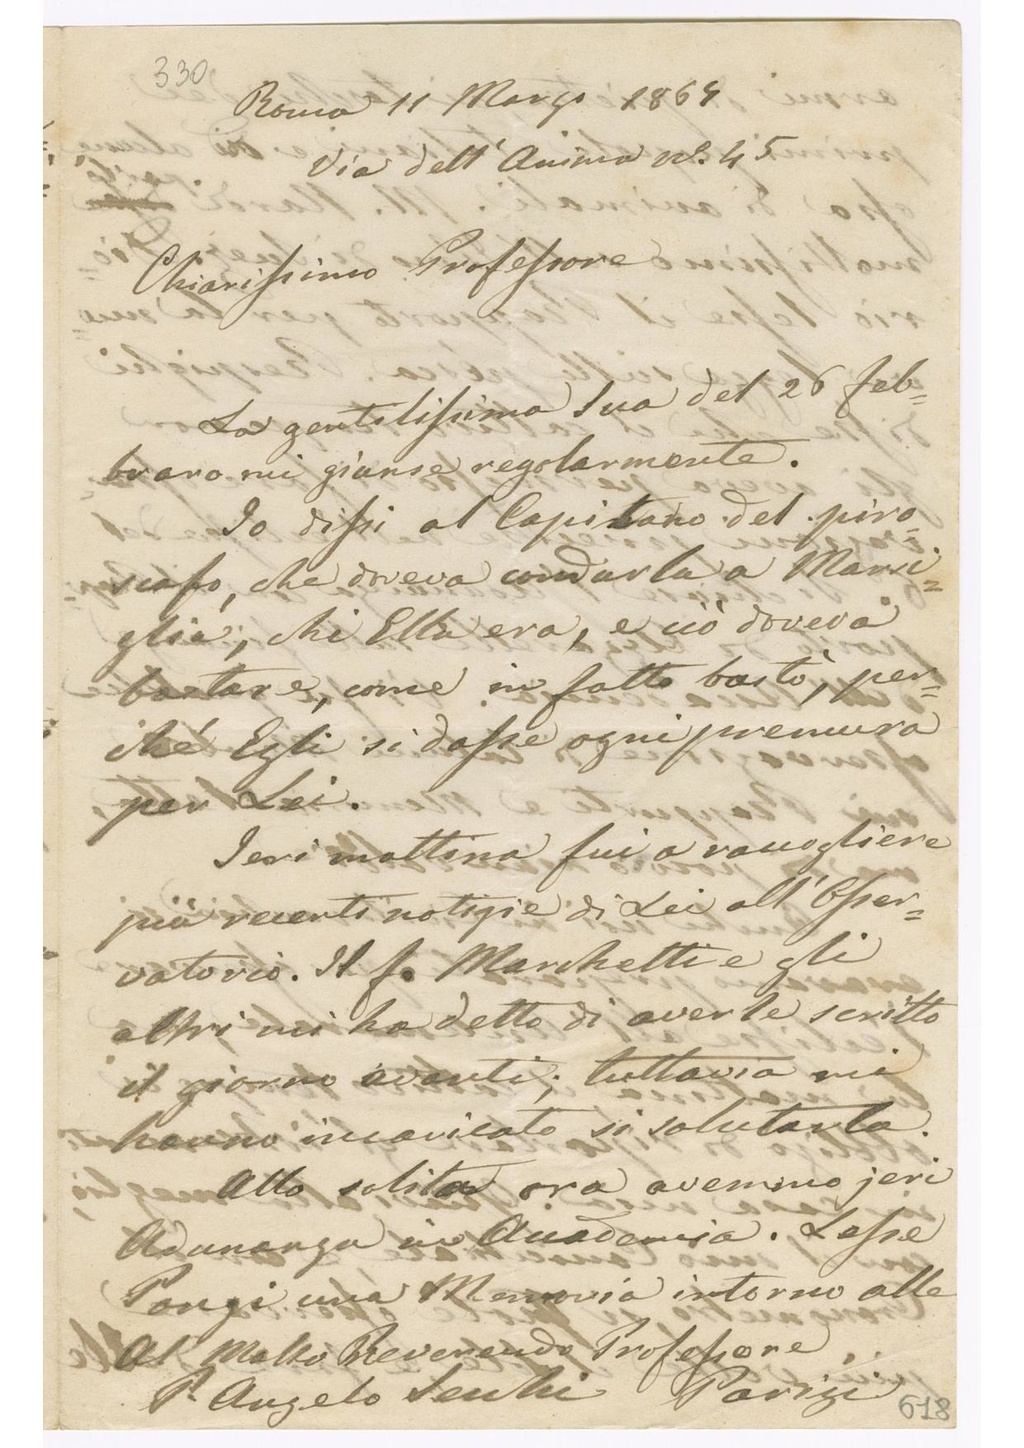 330
Roma 11 Marzo 1867
Via dell' Anima n.° 45
Chiarissimo Professore
La gentilissima Sua del 26 feb=
braro mi giunse regolarmente.
Io dissi al Capitano del piro=
scafo, che doveva condurla a Marsi=
glia, chi Ella era, e ciò doveva
bastare, come in fatto bastò, per=
ché Egli si dasse ogni premura
per Lei.
Jeri mattina fui a raccogliere
più recenti notizie di Lei all' Osser=
vatorio. Il P. Marchetti e gli
altri mi ha detto di averle scritto
il giorno avanti; tuttavia mi
hanno incaricato si salutarla.
Alla solita ora avemmo jeri
Adunanza in Accademia. Lesse
Ponzi una Memoria intorno alle
Al Molto Reverendo Professore
P. Angelo Secchi Parigi
618